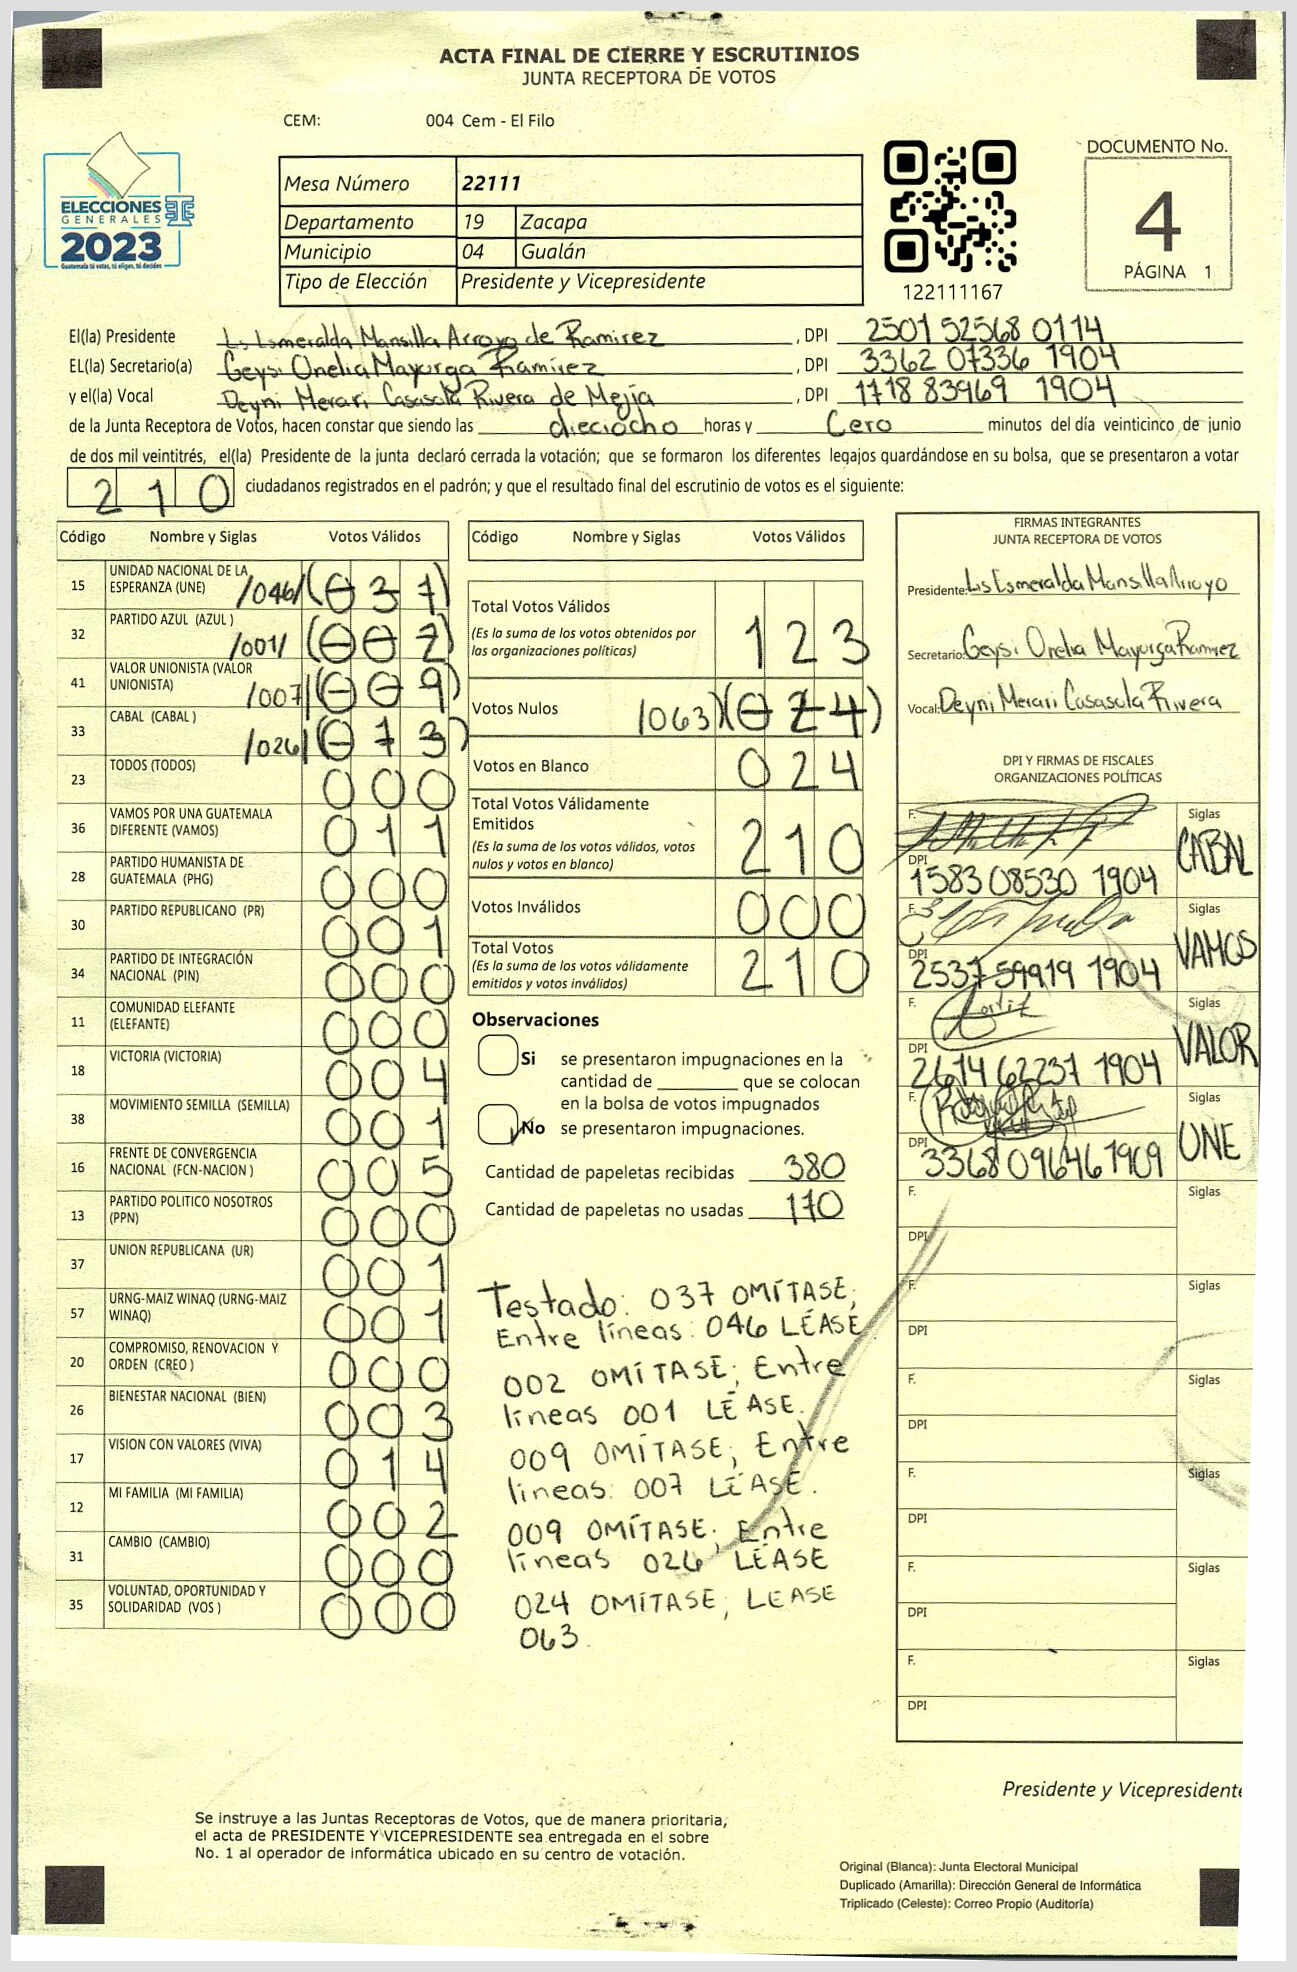 ACTA FINAL DE CIERRE Y ESCRUTINIOS
JUNTA RECEPTORA DE VOTOS
CEM: 004 Cem - El Filo
ELECCIONES
GENERALES
2023
Guatemala tú votas, tú eliges, tú decides
Mesa Número 22111
Departamento 19 Zacapa
Municipio 04 Gualán
Tipo de Elección Presidente y Vicepresidente
122111167
DOCUMENTO No.
4
PÁGINA 1
El(la) Presidente Ls Esmeralda Mansilla Arroyo de Ramirez , DPI 2501 52568 0114
EL(la) Secretario(a) Geysi Onelia Mayorga Ramírez , DPI 3362 07336 1904
y el(la) Vocal Deyni Merari Casasola Rivera de Mejía , DPI 1718 83969 1904
de la Junta Receptora de Votos, hacen constar que siendo las dieciocho horas y Cero minutos del día veinticinco de junio
de dos mil veintitrés, el(la) Presidente de la junta declaró cerrada la votación; que se formaron los diferentes legajos guardándose en su bolsa, que se presentaron a votar
210 ciudadanos registrados en el padrón; y que el resultado final del escrutinio de votos es el siguiente:
Código Nombre y Siglas Votos Válidos
15 UNIDAD NACIONAL DE LA ESPERANZA (UNE) /046/ (037)
32 PARTIDO AZUL (AZUL ) /001/ (002)
41 VALOR UNIONISTA (VALOR UNIONISTA) /007/ (009)
33 CABAL (CABAL ) /026/ (073)
23 TODOS (TODOS) 000
36 VAMOS POR UNA GUATEMALA DIFERENTE (VAMOS) 011
28 PARTIDO HUMANISTA DE GUATEMALA (PHG) 000
30 PARTIDO REPUBLICANO (PR) 001
34 PARTIDO DE INTEGRACIÓN NACIONAL (PIN) 000
11 COMUNIDAD ELEFANTE (ELEFANTE) 000
18 VICTORIA (VICTORIA) 004
38 MOVIMIENTO SEMILLA (SEMILLA) 001
16 FRENTE DE CONVERGENCIA NACIONAL (FCN-NACION ) 005
13 PARTIDO POLITICO NOSOTROS (PPN) 000
37 UNION REPUBLICANA (UR) 001
57 URNG-MAIZ WINAQ (URNG-MAIZ WINAQ) 001
20 COMPROMISO, RENOVACION Y ORDEN (CREO ) 000
26 BIENESTAR NACIONAL (BIEN) 003
17 VISION CON VALORES (VIVA) 014
12 MI FAMILIA (MI FAMILIA) 002
31 CAMBIO (CAMBIO) 000
35 VOLUNTAD, OPORTUNIDAD Y SOLIDARIDAD (VOS ) 000
Código Nombre y Siglas Votos Válidos
Total Votos Válidos 123
(Es la suma de los votos obtenidos por
las organizaciones políticas)
Votos Nulos /063/ (024)
Votos en Blanco 024
Total Votos Válidamente
Emitidos 210
(Es la suma de los votos válidos, votos
nulos y votos en blanco)
Votos Inválidos 000
Total Votos 210
(Es la suma de los votos válidamente
emitidos y votos inválidos)
Observaciones
Si se presentaron impugnaciones en la
cantidad de ________ que se colocan
en la bolsa de votos impugnados
No se presentaron impugnaciones.
Cantidad de papeletas recibidas 380
Cantidad de papeletas no usadas 170
Testado: 037 OMÍTASE;
Entre líneas: 046 LÉASE
002 OMÍTASE; Entre
líneas 001 LÉASE.
009 OMÍTASE; Entre
líneas: 007 LÉASE.
009 OMÍTASE; Entre
líneas 026 LÉASE
024 OMÍTASE; LEASE
063.
FIRMAS INTEGRANTES
JUNTA RECEPTORA DE VOTOS
Presidente: Ls Esmeralda Mansilla Arroyo
Secretario: Geysi Onelia Mayorga Ramirez
Vocal: Deyni Merari Casasola Rivera
DPI Y FIRMAS DE FISCALES
ORGANIZACIONES POLÍTICAS
F. Siglas CABAL
DPI 1583 08530 1904
F. Siglas VAMOS
DPI 2537 59919 1904
F. Siglas VALOR
DPI 2614 62237 1904
F. Siglas UNE
DPI 3368 09646 1909
F. Siglas
DPI
F. Siglas
DPI
F. Siglas
DPI
F. Siglas
DPI
F. Siglas
DPI
F. Siglas
DPI
Presidente y Vicepresidente
Se instruye a las Juntas Receptoras de Votos, que de manera prioritaria,
el acta de PRESIDENTE Y VICEPRESIDENTE sea entregada en el sobre
No. 1 al operador de informática ubicado en su centro de votación.
Original (Blanca): Junta Electoral Municipal
Duplicado (Amarilla): Dirección General de Informática
Triplicado (Celeste): Correo Propio (Auditoría)